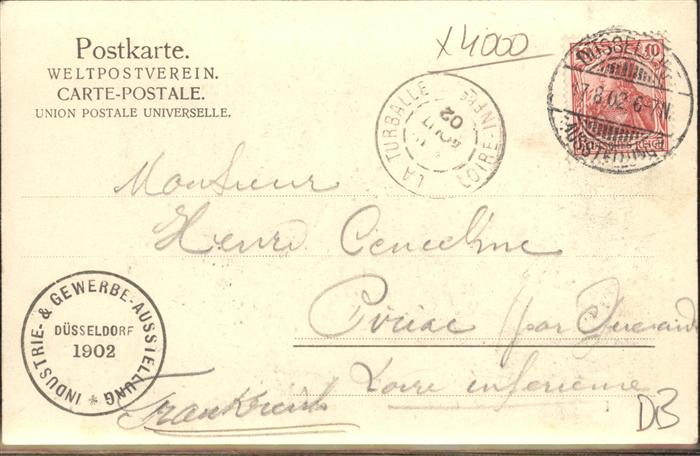 Postkarte.
WELTPOSTVEREIN.
CARTE-POSTALE.
UNION POSTALE UNIVERSELLE.
x 4000
10
DÜSSELDORF
17.8.02 6-7N
AUSSTELLUNG
LA TURBALLE
AOUT
02
LOIRE-INFRE
Monsieur
Henri
Piriac (par Guérande
Loire inférieure
Frankreich
INDUSTRIE- & GEWERBE-AUSSTELLUNG
DÜSSELDORF
1902
DB